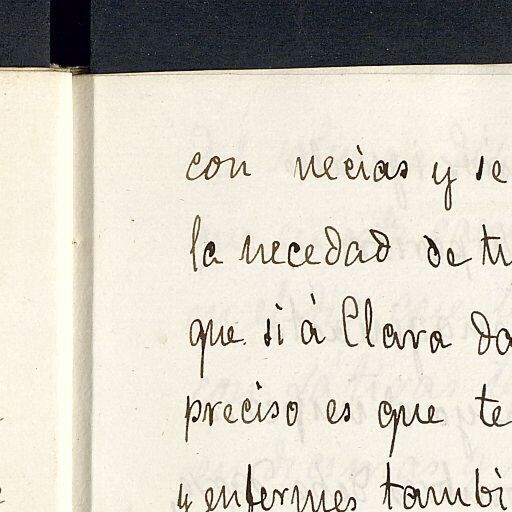 con necias y se
la necedad de tu
que si à Clara da
preciso es que te
y enfermes tambi